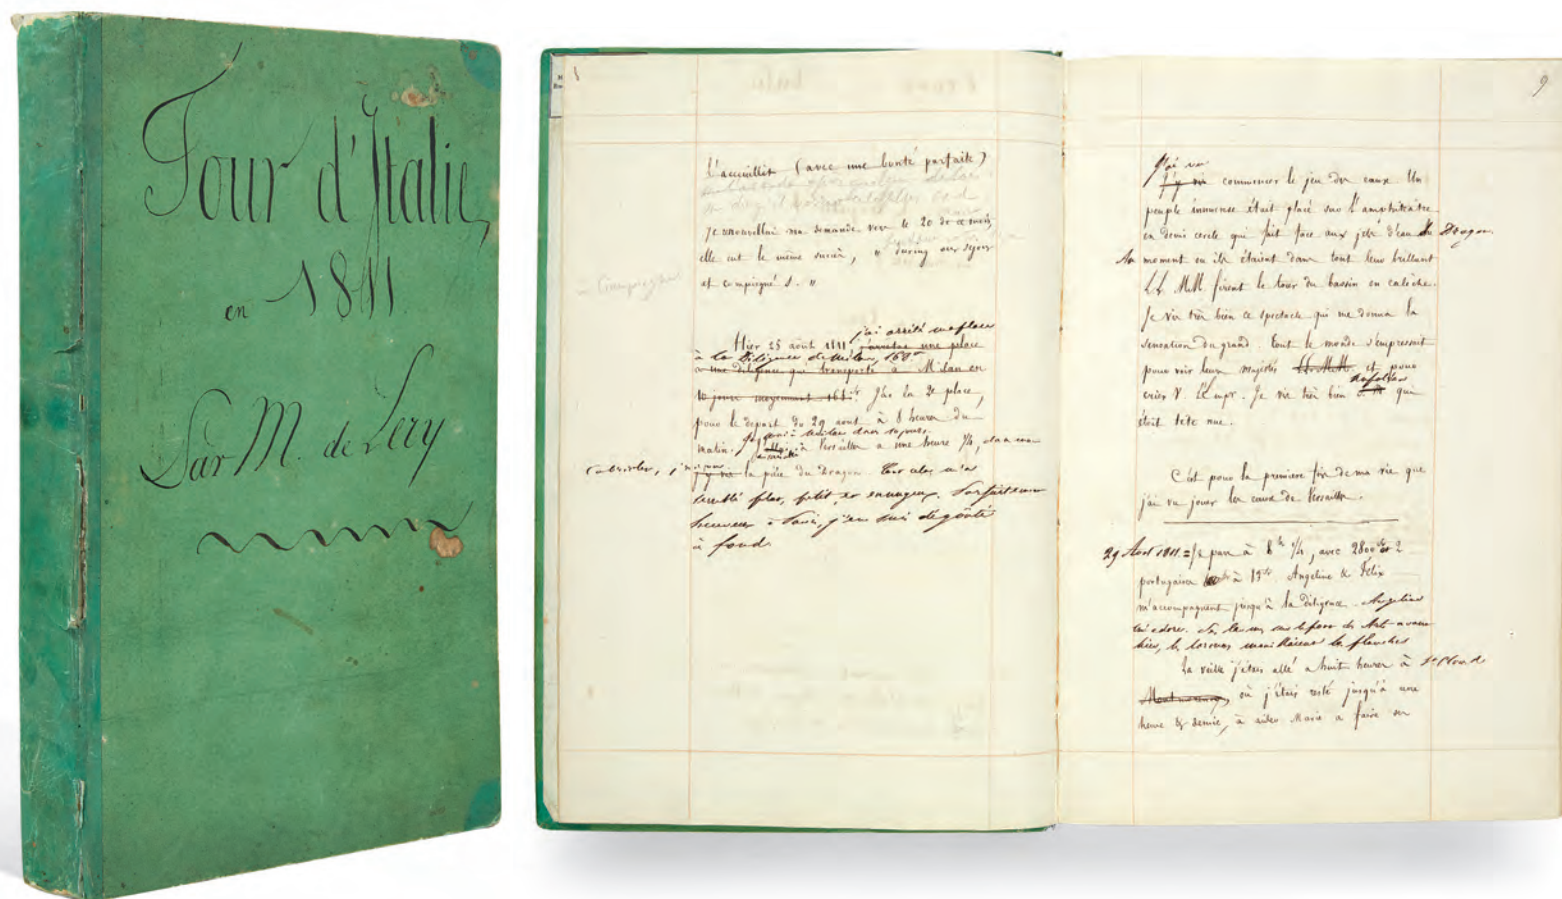 Tour d'Italie
en 1811.
Par M. de Lery
8
l'accueillit (avec une bonté parfaite)
Je renouvellai ma demande vers le 20 de ce mois,
elle eut le même succès, " during our sejour
at compiegne S. "
Compiegne
j'ai arrêté ma place
Hier 25 août 1811 j'arretai une place
à la diligence de milan, 168 fr
a une diligence qui transporte à Milan en
10 jours moyennant 168 fr. J'ai la 2e place,
pour le depart du 29 août à 8 heures du
matin. à Versailles a une heure 1/4,
j'y vis la pièce du Dragon. Tout cela m'a
semblé plat, petit, et ennuyeux. Parfaitement
heureux à Paris, j'en suis dégoûté
à fond.
9
J'ai vu
J'y vis commencer le jeu des eaux. Un
peuple immense était placé sur l'amphitéatre
en demi cercle qui fait face aux jets d'eau du Dragon.
Au moment où ils étaient dans tout leur brillant
LL. MM. firent le tour du bassin en calèche.
Je vis très bien ce spectacle qui me donna la
sensation du grand. Tout le monde s'empressait
pour voir leurs majestés LL. MM. et pour
crier V. L'Empr. Je vis très bien S. M. qui
était tête nue.
C'est pour la premiere fois de ma vie que
j'ai vu jouer les eaux de Versailles.
29 Août 1811. = Je pars à 8h 1/4, avec 2800 fr et 2
portugaises à Angeline & Félix
m'accompagnent jusqu'à la diligence. Angelina
la veille j'étais allé a huit heures à St Cloud
Montmorency, où j'étais resté jusqu'à une
heure & demie, à aider Marie a faire son